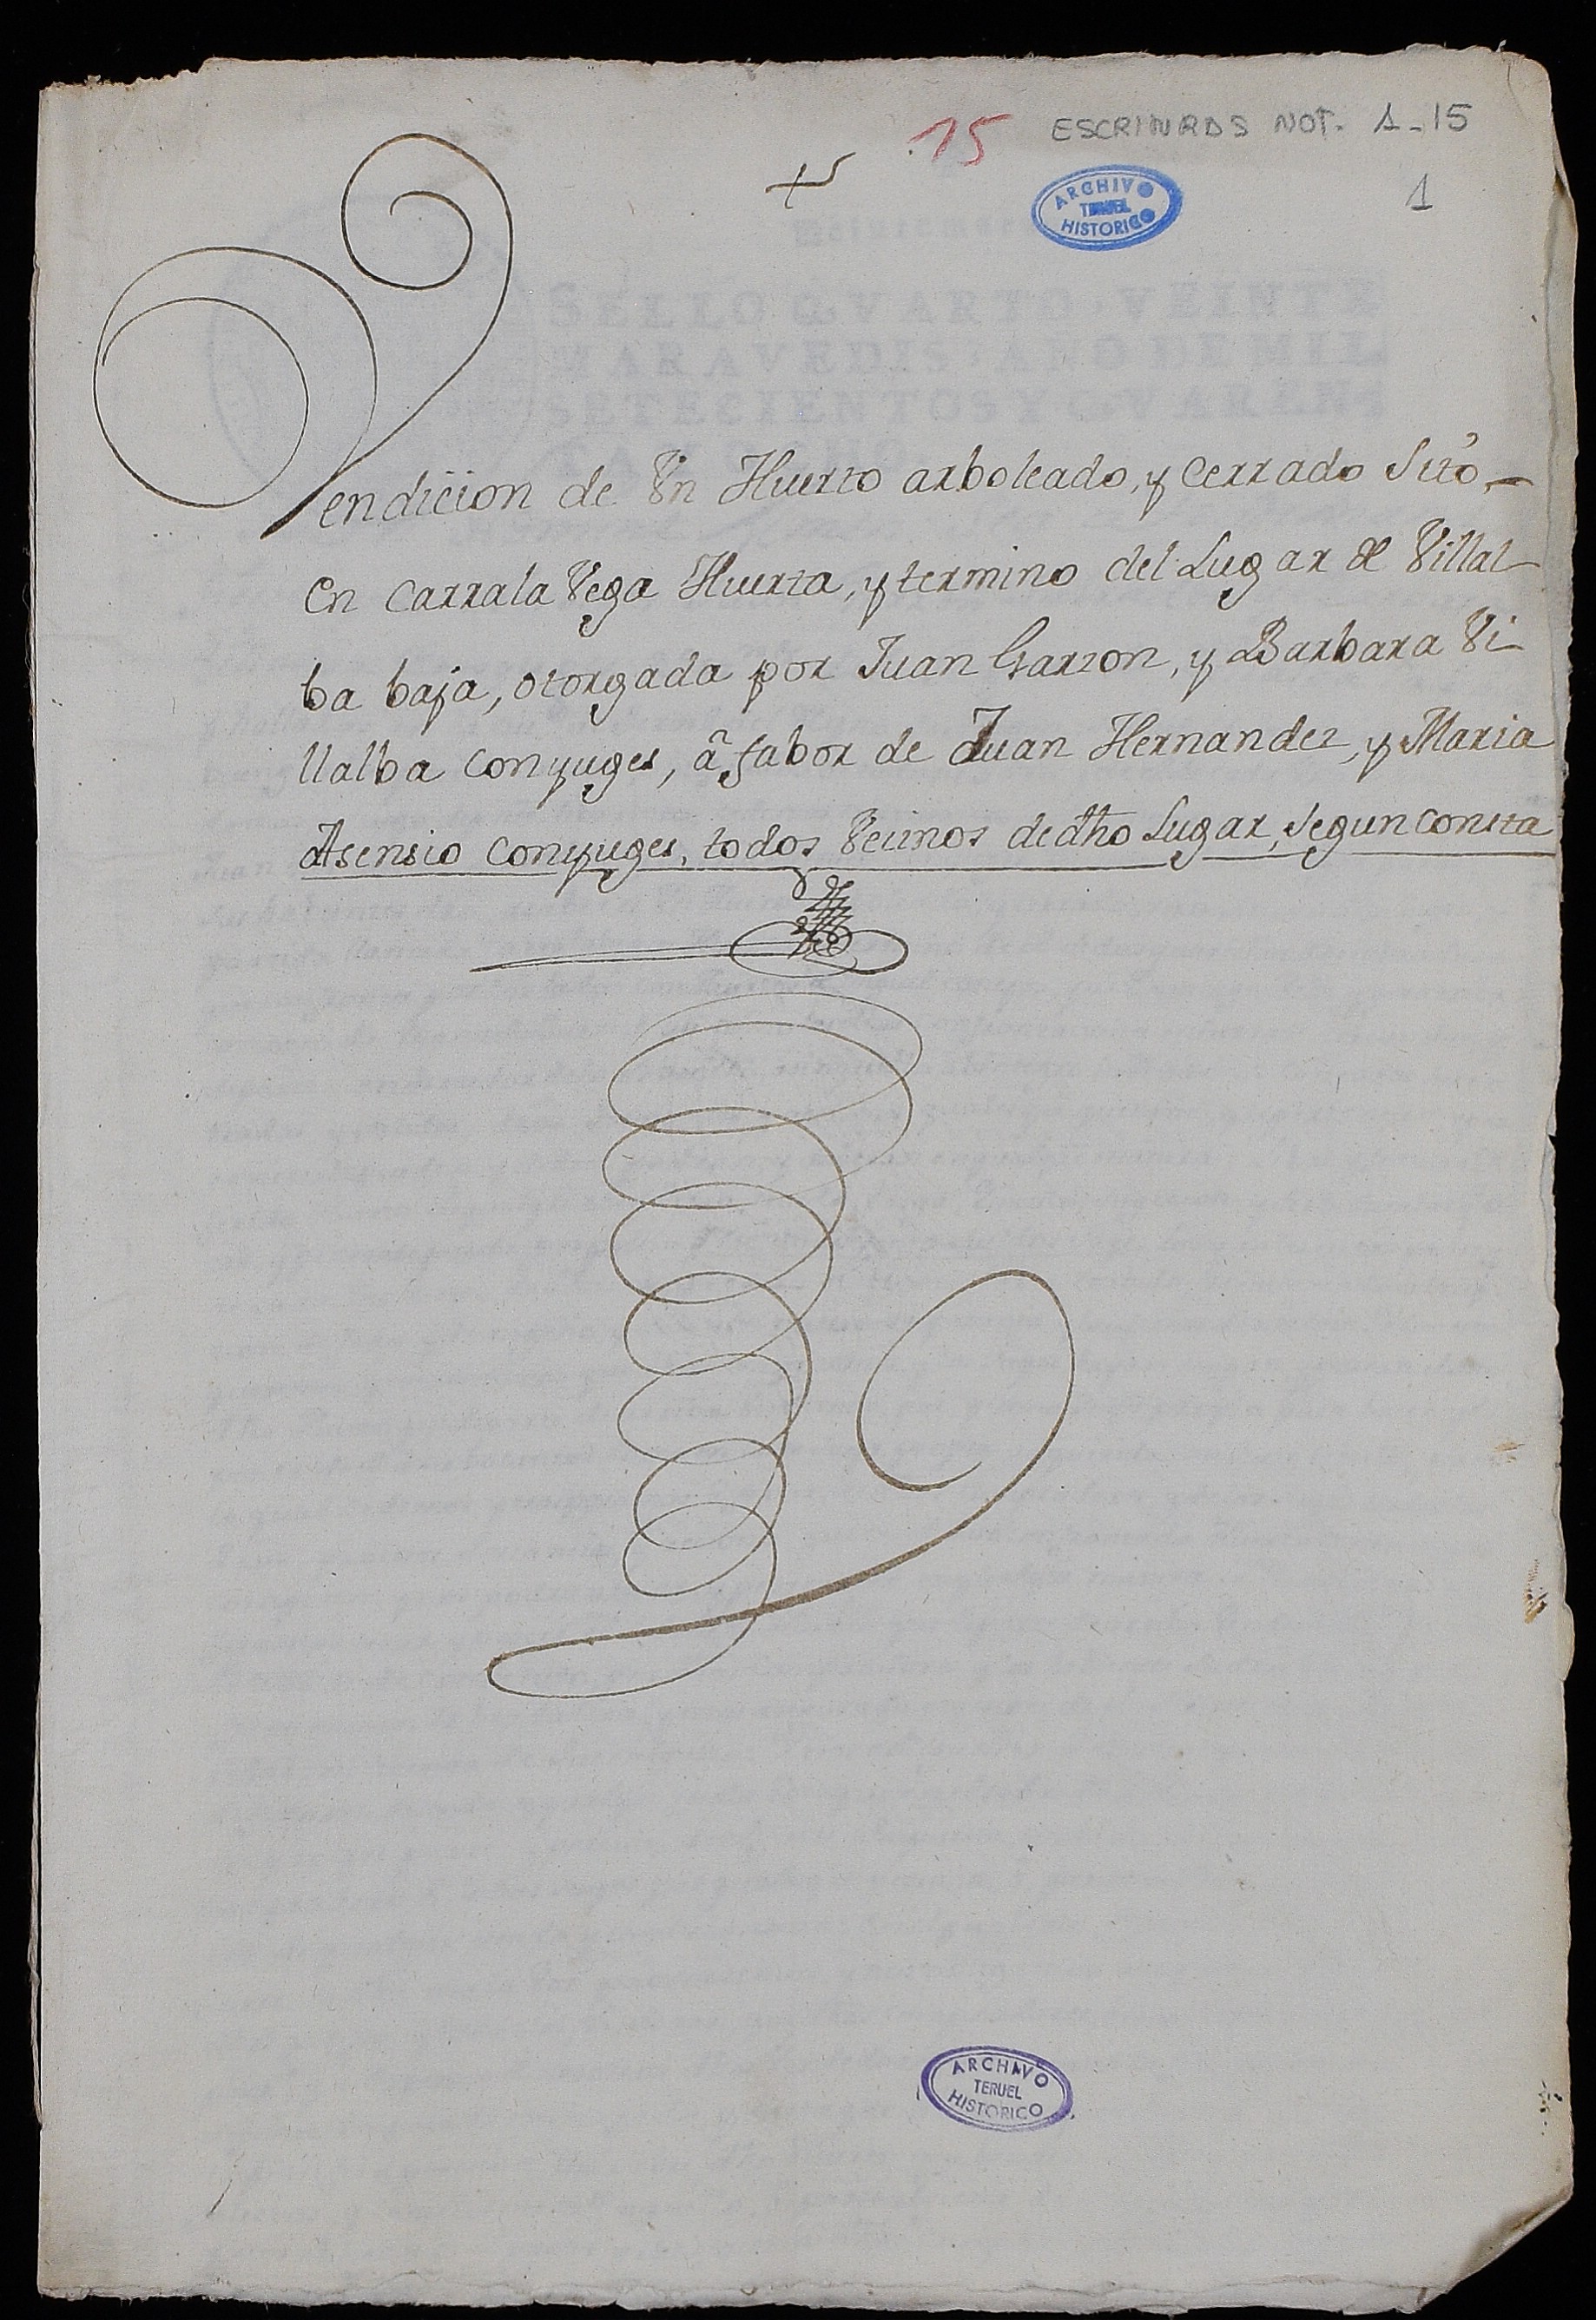 15 ESCRITURAS NOT. 1-15
ARCHIVO
TERUEL
HISTORICO
1
SELLO QVARTO, VEINTE
MARAVEDIS, AÑO DE MIL
SETECIENTOS Y QVAREN-
Vendicion de Vn Huerto arboleado, y Cerrado Sito,
en Carrala Vega Huerta, y termino del Lugar de Villal-
ba baja, otorgada por Juan Garzon, y Barbara Vi-
llalba Conyuges, â fabor de Juan Hernandez, y Maria
Asensio Conyuges, todos Vecinos de dho Lugar, segun consta
ARCHIVO
TERUEL
HISTORICO